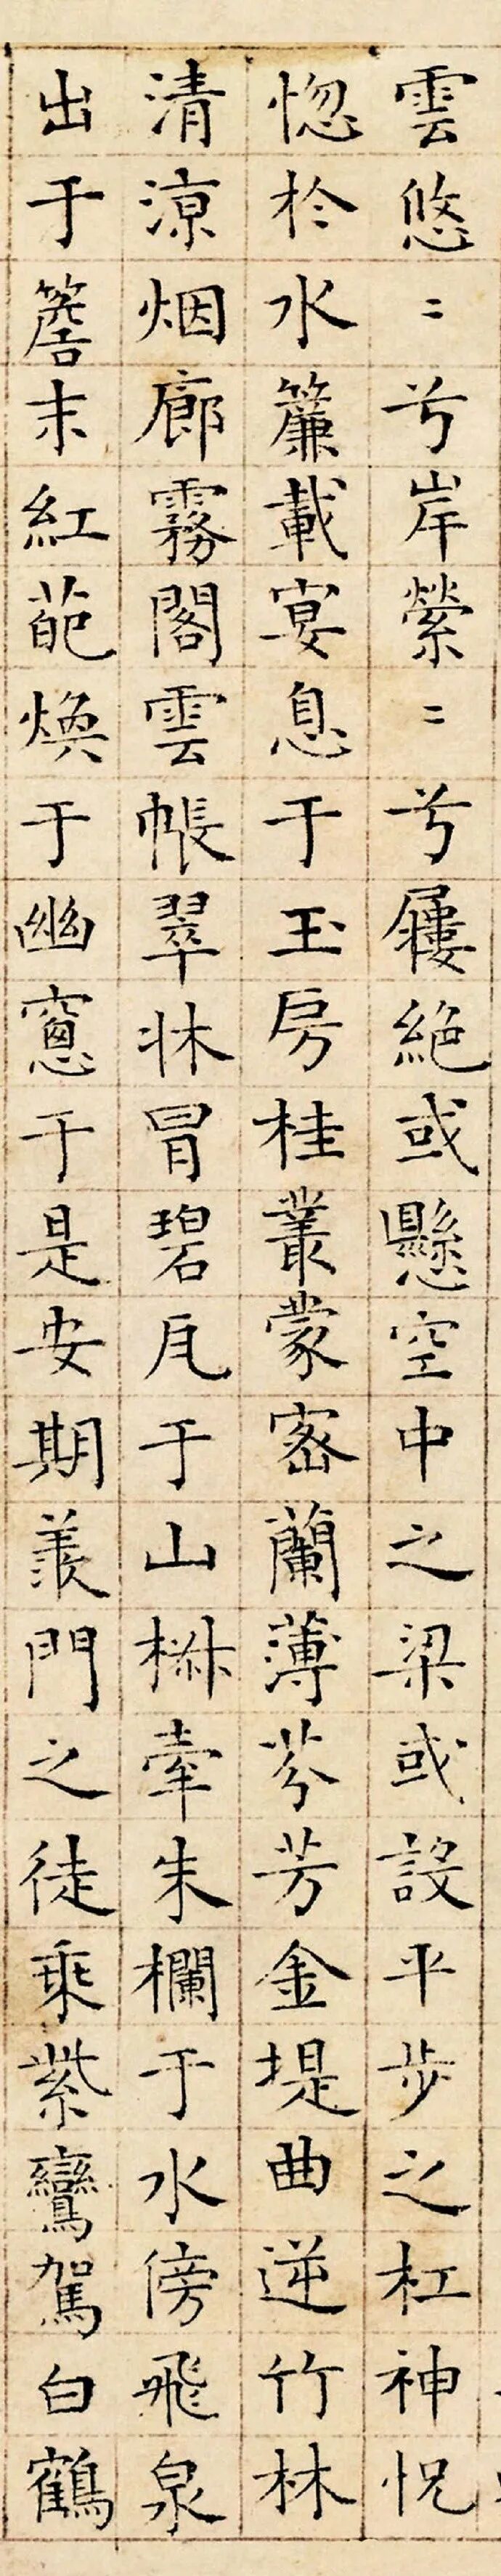 雲悠〻兮岸縈〻兮屢絕或懸空中之梁或設平步之杠神怳
惚於水簾載宴息于玉房桂叢蒙密蘭薄芬芳金堤曲逆竹林
清涼烟廊霧閣雲帳翠牀冒碧瓦于山椒牽朱欄于水傍飛泉
出于簷末紅葩煥于幽窻于是安期羨門之徒乘紫鸞駕白鶴